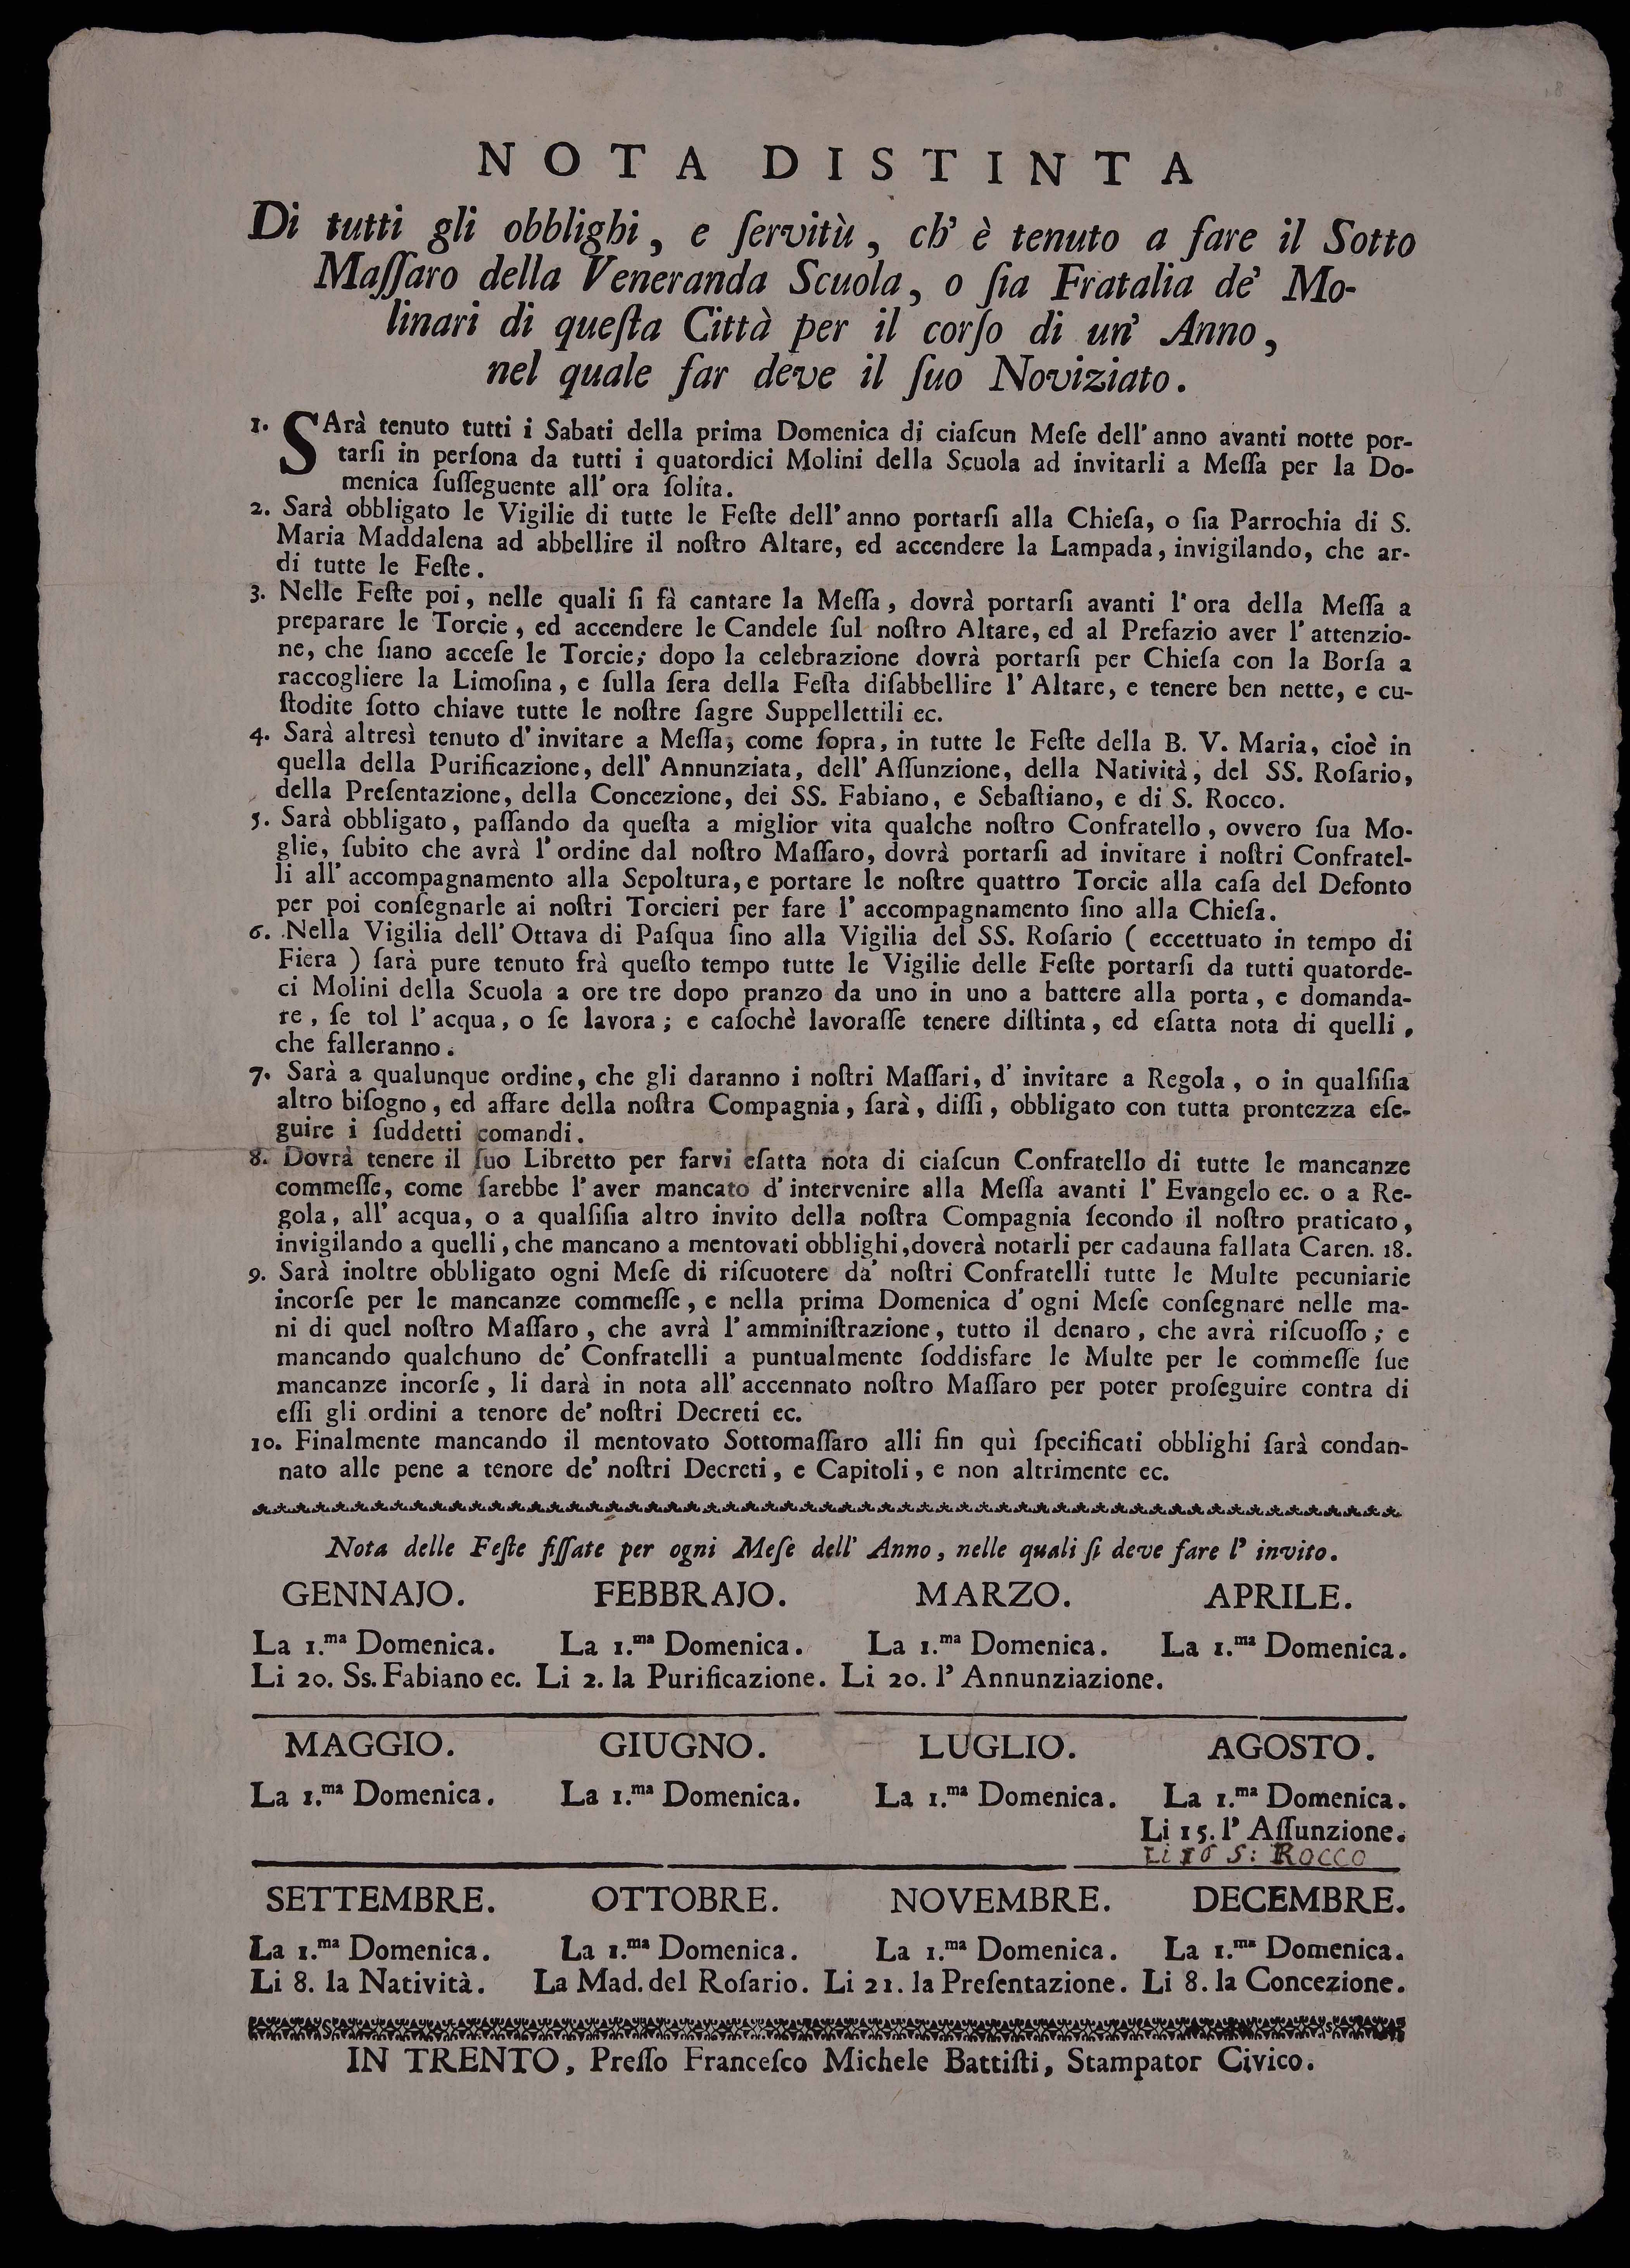 NOTA DISTINTA
Di tutti gli obblighi, e ſervitù, ch' è tenuto a fare il Sotto
Maſſaro della Veneranda Scuola, o ſia Fratalia de' Mo-
linari di queſta Città per il corſo di un' Anno,
nel quale far deve il ſuo Noviziato.
1. SArà tenuto tutti i Sabati della prima Domenica di ciaſcun Meſe dell' anno avanti notte por-
tarſi in perſona da tutti i quatordici Molini della Scuola ad invitarli a Meſſa per la Do-
menica ſuſſeguente all' ora ſolita.
2. Sarà obbligato le Vigilie di tutte le Feſte dell' anno portarſi alla Chieſa, o ſia Parrochia di S.
Maria Maddalena ad abbellire il noſtro Altare, ed accendere la Lampada, invigilando, che ar-
di tutte le Feſte.
3. Nelle Feſte poi, nelle quali ſi fà cantare la Meſſa, dovrà portarſi avanti l' ora della Meſſa a
preparare le Torcie, ed accendere le Candele ſul noſtro Altare, ed al Prefazio aver l' attenzio-
ne, che ſiano acceſe le Torcie; dopo la celebrazione dovrà portarſi per Chieſa con la Borſa a
raccogliere la Limoſina, e ſulla ſera della Feſta diſabbellire l' Altare, e tenere ben nette, e cu-
ſtodite ſotto chiave tutte le noſtre ſagre Suppellettili ec.
4. Sarà altresì tenuto d' invitare a Meſſa, come ſopra, in tutte le Feſte della B. V. Maria, cioè in
quella della Purificazione, dell' Annunziata, dell' Aſſunzione, della Natività, del SS. Roſario,
della Preſentazione, della Concezione, dei SS. Fabiano, e Sebaſtiano, e di S. Rocco.
5. Sarà obbligato, paſſando da queſta a miglior vita qualche noſtro Confratello, ovvero ſua Mo-
glie, ſubito che avrà l' ordine dal noſtro Maſſaro, dovrà portarſi ad invitare i noſtri Confratel-
li all' accompagnamento alla Sepoltura, e portare le noſtre quattro Torcie alla caſa del Defonto
per poi conſegnarle ai noſtri Torcieri per fare l' accompagnamento ſino alla Chieſa.
6. Nella Vigilia dell' Ottava di Paſqua ſino alla Vigilia del SS. Roſario ( eccettuato in tempo di
Fiera ) ſarà pure tenuto frà queſto tempo tutte le Vigilie delle Feſte portarſi da tutti quatorde-
ci Molini della Scuola a ore tre dopo pranzo da uno in uno a battere alla porta, e domanda-
re, ſe tol l' acqua, o ſe lavora; e caſochè lavoraſſe tenere diſtinta, ed eſatta nota di quelli,
che falleranno.
7. Sarà a qualunque ordine, che gli daranno i noſtri Maſſari, d' invitare a Regola, o in qualſiſia
altro biſogno, ed affare della noſtra Compagnia, ſarà, diſſi, obbligato con tutta prontezza eſe-
guire i ſuddetti comandi.
8. Dovrà tenere il ſuo Libretto per farvi eſatta nota di ciaſcun Confratello di tutte le mancanze
commeſſe, come ſarebbe l' aver mancato d' intervenire alla Meſſa avanti l' Evangelo ec. o a Re-
gola, all' acqua, o a qualſiſia altro invito della noſtra Compagnia ſecondo il noſtro praticato,
invigilando a quelli, che mancano a mentovati obblighi, doverà notarli per cadauna fallata Caren. 18.
9. Sarà inoltre obbligato ogni Meſe di riſcuotere da' noſtri Confratelli tutte le Multe pecuniarie
incorſe per le mancanze commeſſe, e nella prima Domenica d' ogni Meſe conſegnare nelle ma-
ni di quel noſtro Maſſaro, che avrà l' amminiſtrazione, tutto il denaro, che avrà riſcuoſſo; e
mancando qualchuno de' Confratelli a puntualmente ſoddisfare le Multe per le commeſſe ſue
mancanze incorſe, li darà in nota all' accennato noſtro Maſſaro per poter proſeguire contra di
eſſi gli ordini a tenore de' noſtri Decreti ec.
10. Finalmente mancando il mentovato Sottomaſſaro alli fin quì ſpecificati obblighi ſarà condan-
nato alle pene a tenore de' noſtri Decreti, e Capitoli, e non altrimente ec.
Nota delle Feſte fiſſate per ogni Meſe dell' Anno, nelle quali ſi deve fare l' invito.
GENNAJO. FEBBRAJO. MARZO. APRILE.
La 1.ma Domenica. La 1.ma Domenica. La 1.ma Domenica. La 1.ma Domenica.
Li 20. Ss. Fabiano ec. Li 2. la Purificazione. Li 20. l' Annunziazione.
MAGGIO. GIUGNO. LUGLIO. AGOSTO.
La 1.ma Domenica. La 1.ma Domenica. La 1.ma Domenica. La 1.ma Domenica.
Li 15. l' Aſſunzione.
Li 16 S: ROCCO
SETTEMBRE. OTTOBRE. NOVEMBRE. DECEMBRE.
La 1.ma Domenica. La 1.ma Domenica. La 1.ma Domenica. La 1.ma Domenica.
Li 8. la Natività. La Mad. del Roſario. Li 21. la Preſentazione. Li 8. la Concezione.
IN TRENTO, Preſſo Franceſco Michele Battiſti, Stampator Civico.